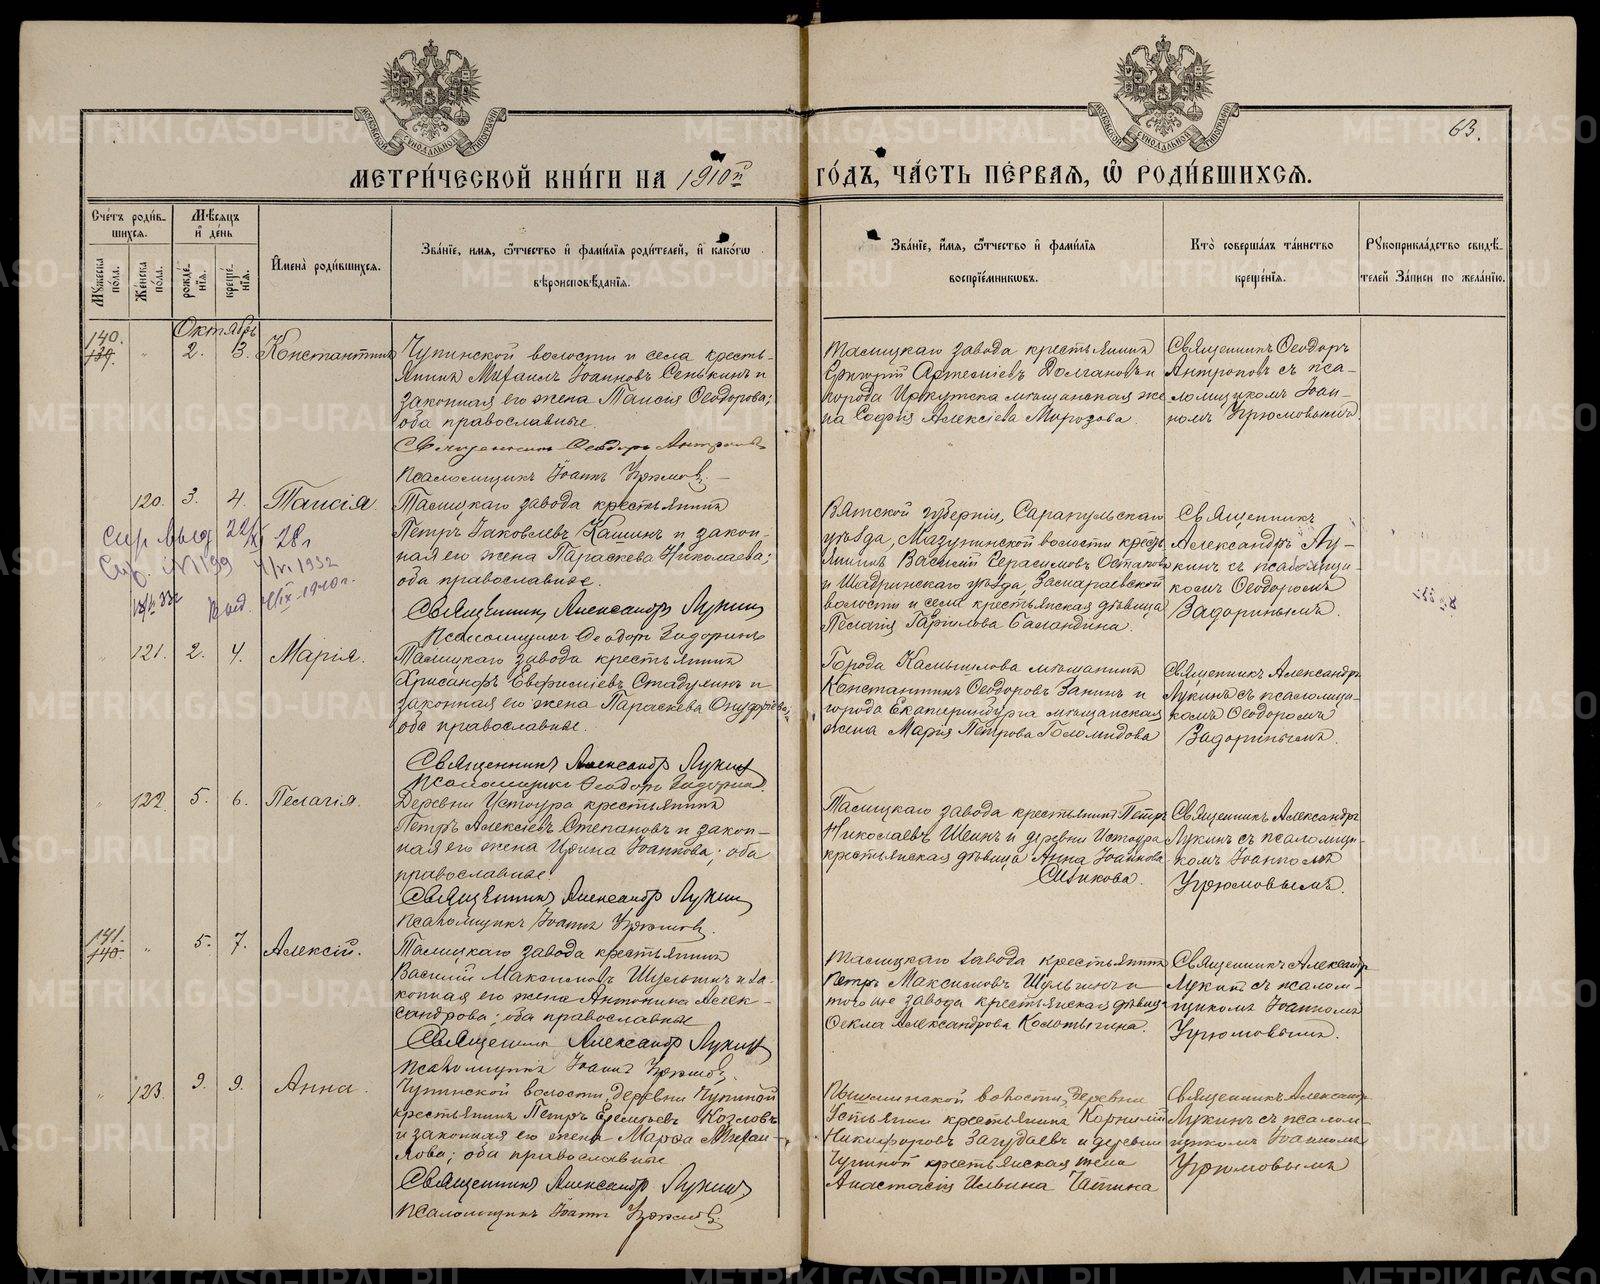 63.
МЕТРИ́ЧЕСКОЙ КНИ́ГИ НА 1910й ГО́ДЪ, ЧА́СТЬ ПЕ́РВАЯ, Ѡ РОДИ́ВШИХСЯ.
Сче́тъ роди́в-
шихся.
Му́жеска по́ла.
Же́нска по́ла.
Мѣ́сяцъ и де́нь
рожде́нія.
креще́нія.
Имена̀ роди́вшихся.
Зва́ніе, имя, ѻ҆тчество и фами́лія роди́телей, и како́гѡ
вѣроисповѣ́данія.
Зва́ніе, и́мя, ѻ҆тчество и фами́лія
воспріе́мниковъ.
Кто̀ соверша́лъ та́инство
креще́нія.
Рукоприкла́дство свидѣ́-
телей За́писи по жела́нію.
Октябрь
140.
139.
" 2. 3. Константинъ
Чупинской волости и села кресть-
янинъ Михаилъ Іоанновъ Сенькинъ и
законная его жена Таисія Ѳеодорова;
оба православные.
Священникъ Ѳеодоръ Антроповъ
Псаломщикъ Іоаннъ Угрюмовъ.
Талицкаго завода крестьянинъ
Григорій Артеміевъ Долгановъ и
города Иркутска мѣщанская же-
на Софія Алексіева Морозова.
Священникъ Ѳеодоръ
Антроповъ съ пса-
ломщикомъ Іоан-
номъ Угрюмовымъ.
120. 3. 4. Таисія.
Спр. выд. 22/XI 28 г
Спр. №199 4/VI 1932
Выд. 4/IX-1940 г.
Талицкаго завода крестьянинъ
Петръ Іаковлевъ Кашинъ и закон-
ная его жена Параскева Николаева;
оба православные.
Священникъ Александръ Лукинъ
Псаломщикъ Ѳеодоръ Задоринъ
Вятской губерніи, Сарапульскаго
уѣзда, Мазунинской волости кресть-
янинъ Василій Герасимовъ Останинъ
и Шадринскаго уѣзда, Замараевской
волости и села крестьянская дѣвица
Пелагія Гавріилова Баландина.
Священникъ
Александръ Лу-
кинъ съ псаломщи-
комъ Ѳеодоромъ
Задоринымъ.
" 121. 2. 4. Марія.
Талицкаго завода крестьянинъ
Хрисанфъ Евфиміевъ Стадухинъ и
законная его жена Параскева Онуфріева;
оба православные.
Священникъ Александръ Лукинъ
Псаломщикъ Ѳеодоръ Задоринъ
Города Камышлова мѣщанинъ
Константинъ Ѳеодоровъ Занинъ и
города Екатеринбурга мѣщанская
жена Марія Петрова Голомидова
Священникъ Александръ
Лукинъ съ псаломщи-
комъ Ѳеодоромъ
Задоринымъ.
" 122. 5. 6. Пелагія.
Деревни Истоура крестьянинъ
Петръ Алексіевъ Степановъ и закон-
ная его жена Ирина Іоаннова; оба
православные.
Священникъ Александръ Лукинъ
Псаломщикъ Іоаннъ Угрюмовъ.
Талицкаго завода крестьянинъ Петръ
Николаевъ Швинъ и деревни Истоура
крестьянская дѣвица Анна Іоаннова
Ситикова.
Священникъ Александръ
Лукинъ съ псаломщи-
комъ Іоанномъ
Угрюмовымъ.
141.
140.
" 5. 7. Алексій.
Талицкаго завода крестьянинъ
Василій Максимовъ Шульгинъ и за-
конная его жена Антонина Алек-
сандрова; оба православные
Священникъ Александръ Лукинъ
Псаломщикъ Іоаннъ Угрюмовъ.
Талицкаго завода крестьянинъ
Петръ Максимовъ Шульгинъ и
того же завода крестьянская дѣвица
Ѳекла Александрова Колотыгина.
Священникъ Александръ
Лукинъ съ псалом-
щикомъ Іоанномъ
Угрюмовымъ.
" 123. 9. 9. Анна.
Чупинской волости, деревни Чупиной
крестьянинъ Петръ Ермильевъ Козловъ
и законная его жена Марѳа Михаи-
лова; оба православные
Священникъ Александръ Лукинъ
Псаломщикъ Іоаннъ Угрюмовъ
Пышминской волости, деревни
Устьянки крестьянинъ Корнилій
Никифоровъ Загудаевъ и деревни
Чупиной крестьянская жена
Анастасія Ильина Чупина
Священникъ Александръ
Лукинъ съ псалом-
щикомъ Іоанномъ
Угрюмовымъ
METRIKI.GASO-URAL.RU